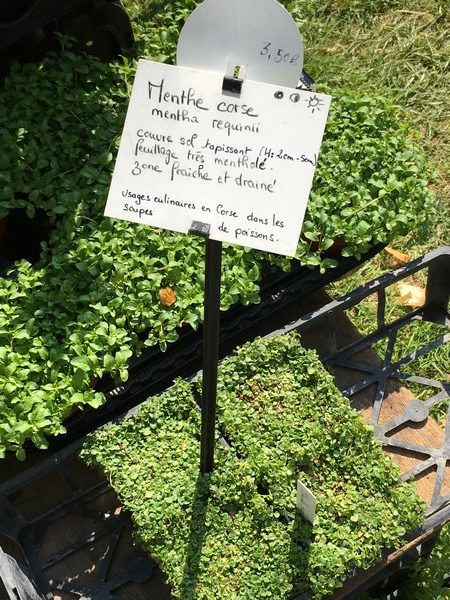 3,50€
Menthe corse
mentha requinii
couvre sol tapissant (H: 2cm-5cm)
feuillage très mentholé.
zone fraîche et drainé
Usages culinaires en Corse dans les
soupes de poissons.